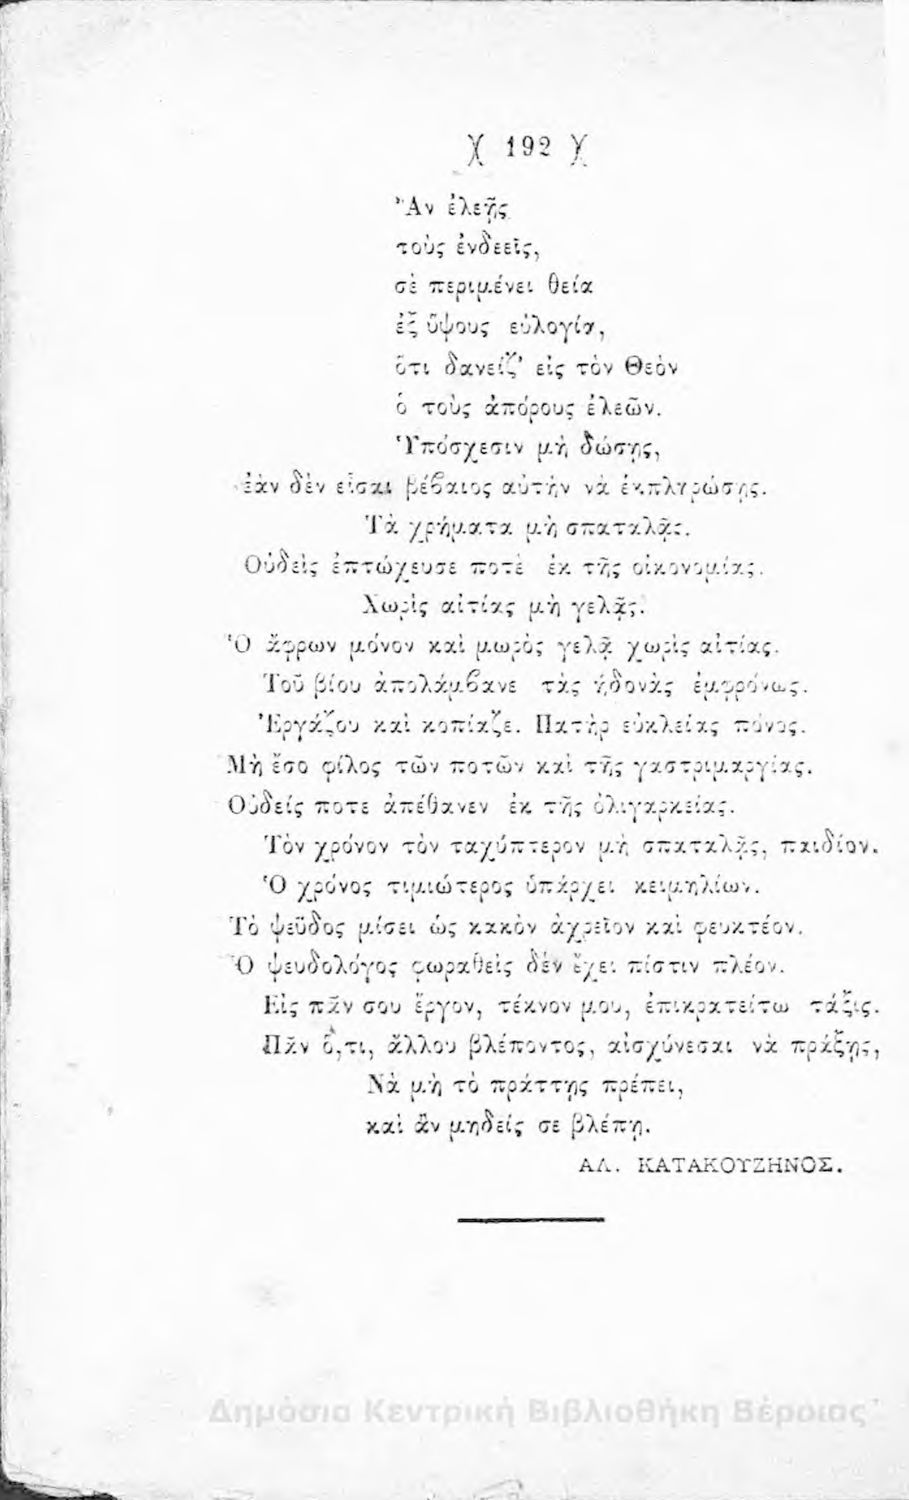 )( 192 )(
Ἂν ἐλεῇς
τοὺς ἐνδεεῖς,
σὲ περιμένει θεία
ἐξ ὕψους εὐλογία,
ὅτι δανείζ’ εἰς τὸν Θεὸν
ὁ τοὺς ἀπόρους ἐλεῶν.
Ὑπόσχεσιν μὴ δώσῃς,
ἐὰν δὲν εἶσαι βέβαιος αὐτὴν νὰ ἐκπληρώσῃς.
Τὰ χρήματα μὴ σπαταλᾷς.
Οὐδεὶς ἐπτώχευσε ποτὲ ἐκ τῆς οἰκονομίας.
Χωρὶς αἰτίας μὴ γελᾷς.
Ὁ ἄφρων μόνον καὶ μωρὸς γελᾷ χωρὶς αἰτίας.
Τοῦ βίου ἀπολάμβανε τὰς ἡδονὰς ἐμφρόνως.
Ἐργάζου καὶ κοπίαζε. Πατὴρ εὐκλείας πόνος.
Μὴ ἔσο φίλος τῶν ποτῶν καὶ τῆς γαστριμαργίας.
Οὐδείς ποτε ἀπέθανεν ἐκ τῆς ὀλιγαρκείας.
Τὸν χρόνον τὸν ταχύπτερον μὴ σπαταλᾷς, παιδίον.
Ὁ χρόνος τιμιώτερος ὑπάρχει κειμηλίων.
Τὸ ψεῦδος μίσει ὡς κακὸν ἀχρεῖον καὶ φευκτέον.
Ὁ ψευδολόγος φωραθεὶς δὲν ἔχει πίστιν πλέον.
Εἰς πᾶν σου ἔργον, τέκνον μου, ἐπικρατείτω τάξις.
Πᾶν ὅ,τι, ἄλλου βλέποντος, αἰσχύνεσαι νὰ πράξῃς,
Νὰ μὴ τὸ πράττῃς πρέπει,
καὶ ἂν μηδείς σε βλέπῃ.
ΑΛ. ΚΑΤΑΚΟΥΖΗΝΟΣ.
Δημόσια Κεντρική Βιβλιοθήκη Βέροιας